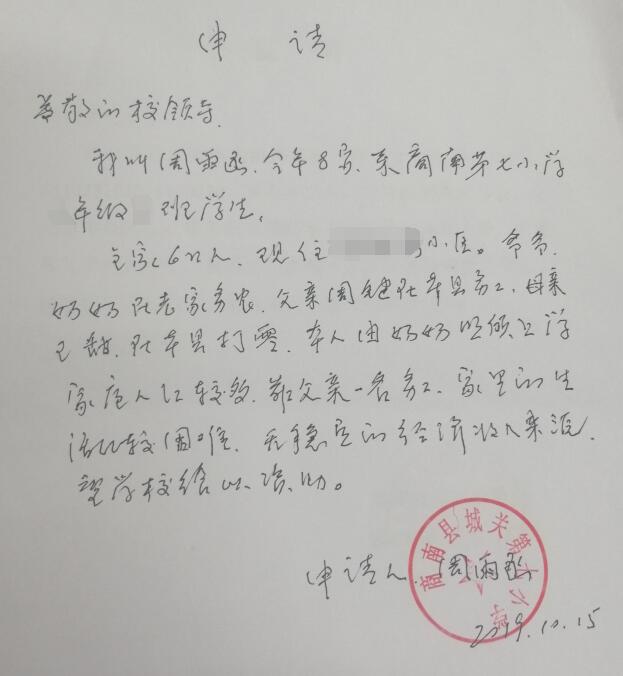 申 请
尊敬的校领导,
我叫周雨函.今年8岁.系商南第七小学
年级 班学生,
全家6口人.现住 小区。爷爷.
奶奶在老家务农.父亲周健在本县务工.母亲
在本县打零.本人由奶奶照顾上学
家庭人口较多.靠父亲一名务工.家里的生
活比较困难.无稳定的经济收入来源.
望学校给以资助。
申请人.周雨函
商南县城关第七小学
2019.10.15